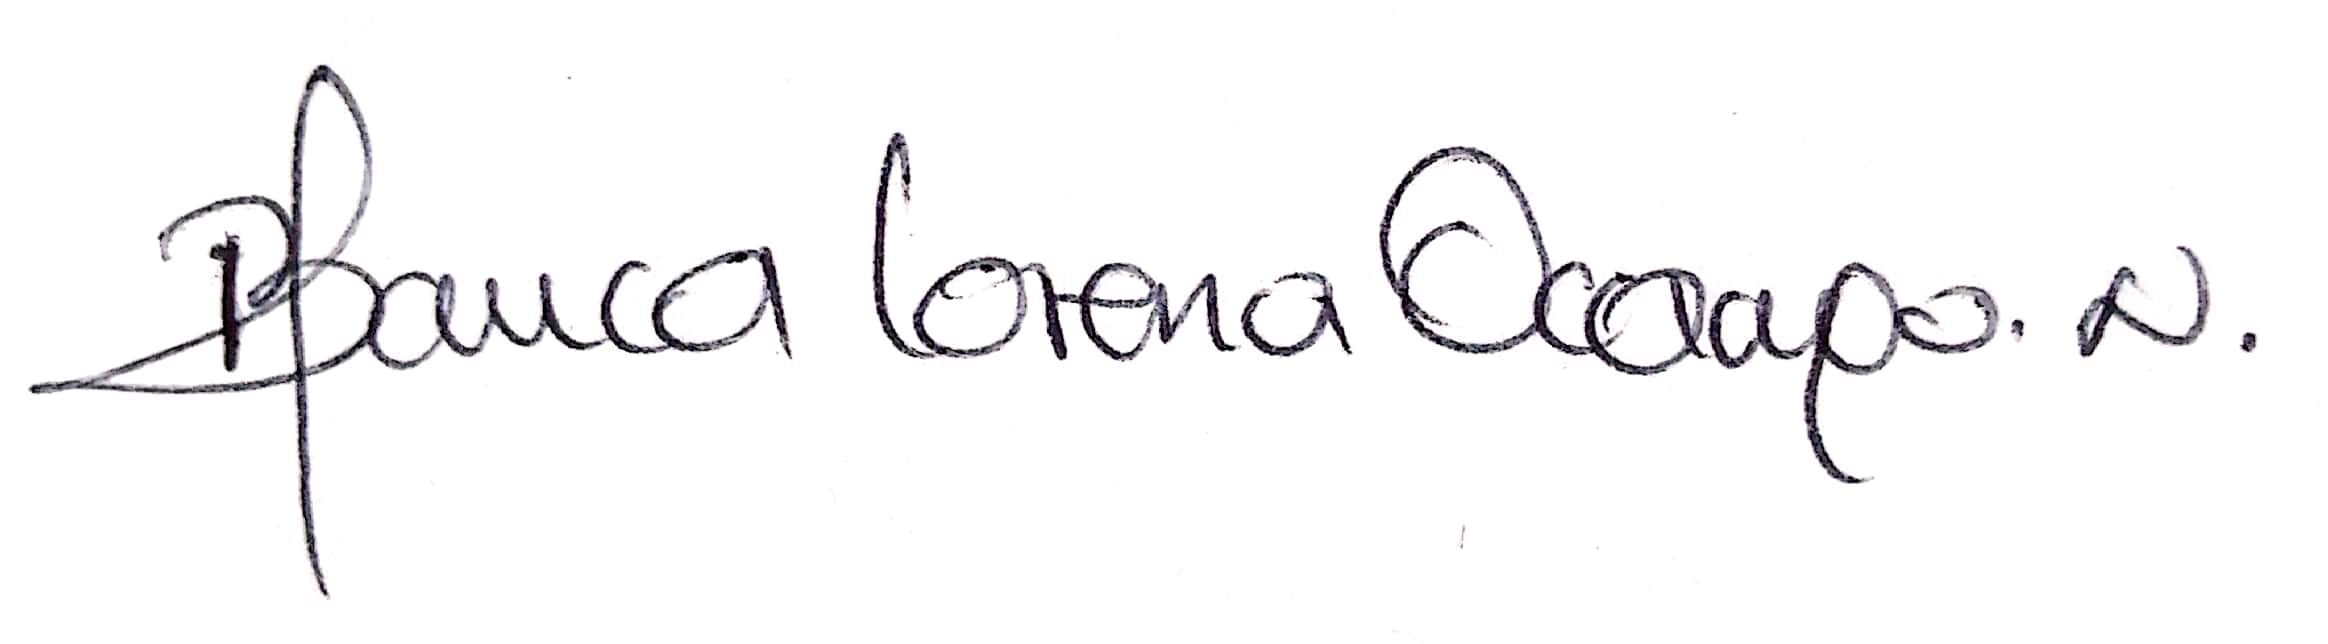 Blanca Lorena Ocampo. N.